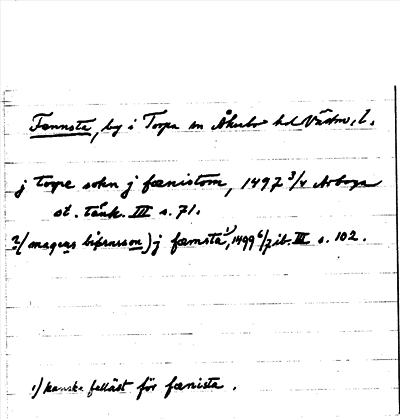 Fænnsta, by i Torpa sn Åkerbo hd Västm. l.
j torpe sokn j fænistom, 1497 3/4 Arboga
st. tänk. III s. 71.
2/ (magens biörnsson) j fæmsta 1), 1499 6/7 ib. III s. 102.
1) kanske felläst för fænista.